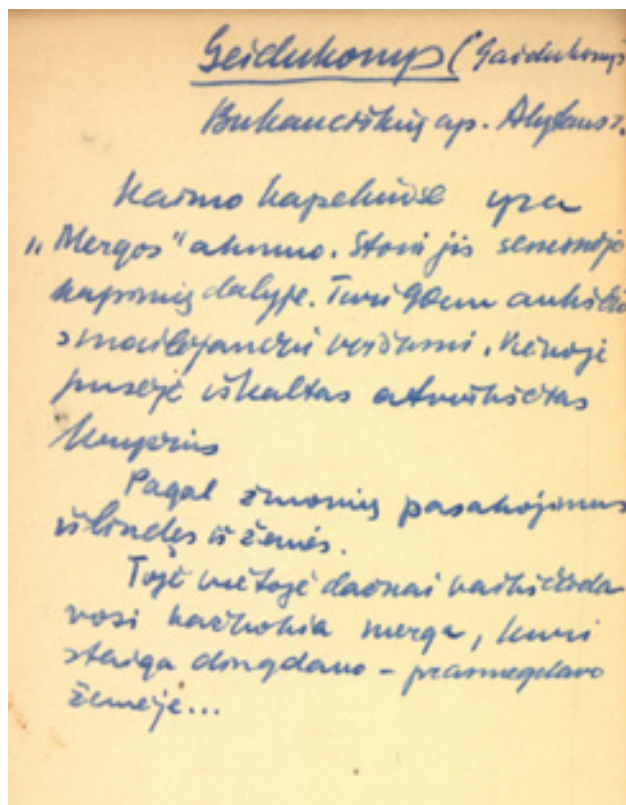 Geidukonys (Gaidukonys
Bukaučiškių ap. Alytaus r.
Kaimo kapeliuose yra
„Mergos" akmuo. Stovi jis senesnėje
kapinių dalyje. Turi 90 cm aukščio
smailėjančiu viršumi. Vienoje
pusėje iškaltas atvirkščias
kryžius
Pagal žmonių pasakojimus
išlindęs iš žemės.
Toje vietoje dažnai vaikščioda
vosi kažkokia merga, kuri
staiga dingdavo - prasmegdavo
žemėje...